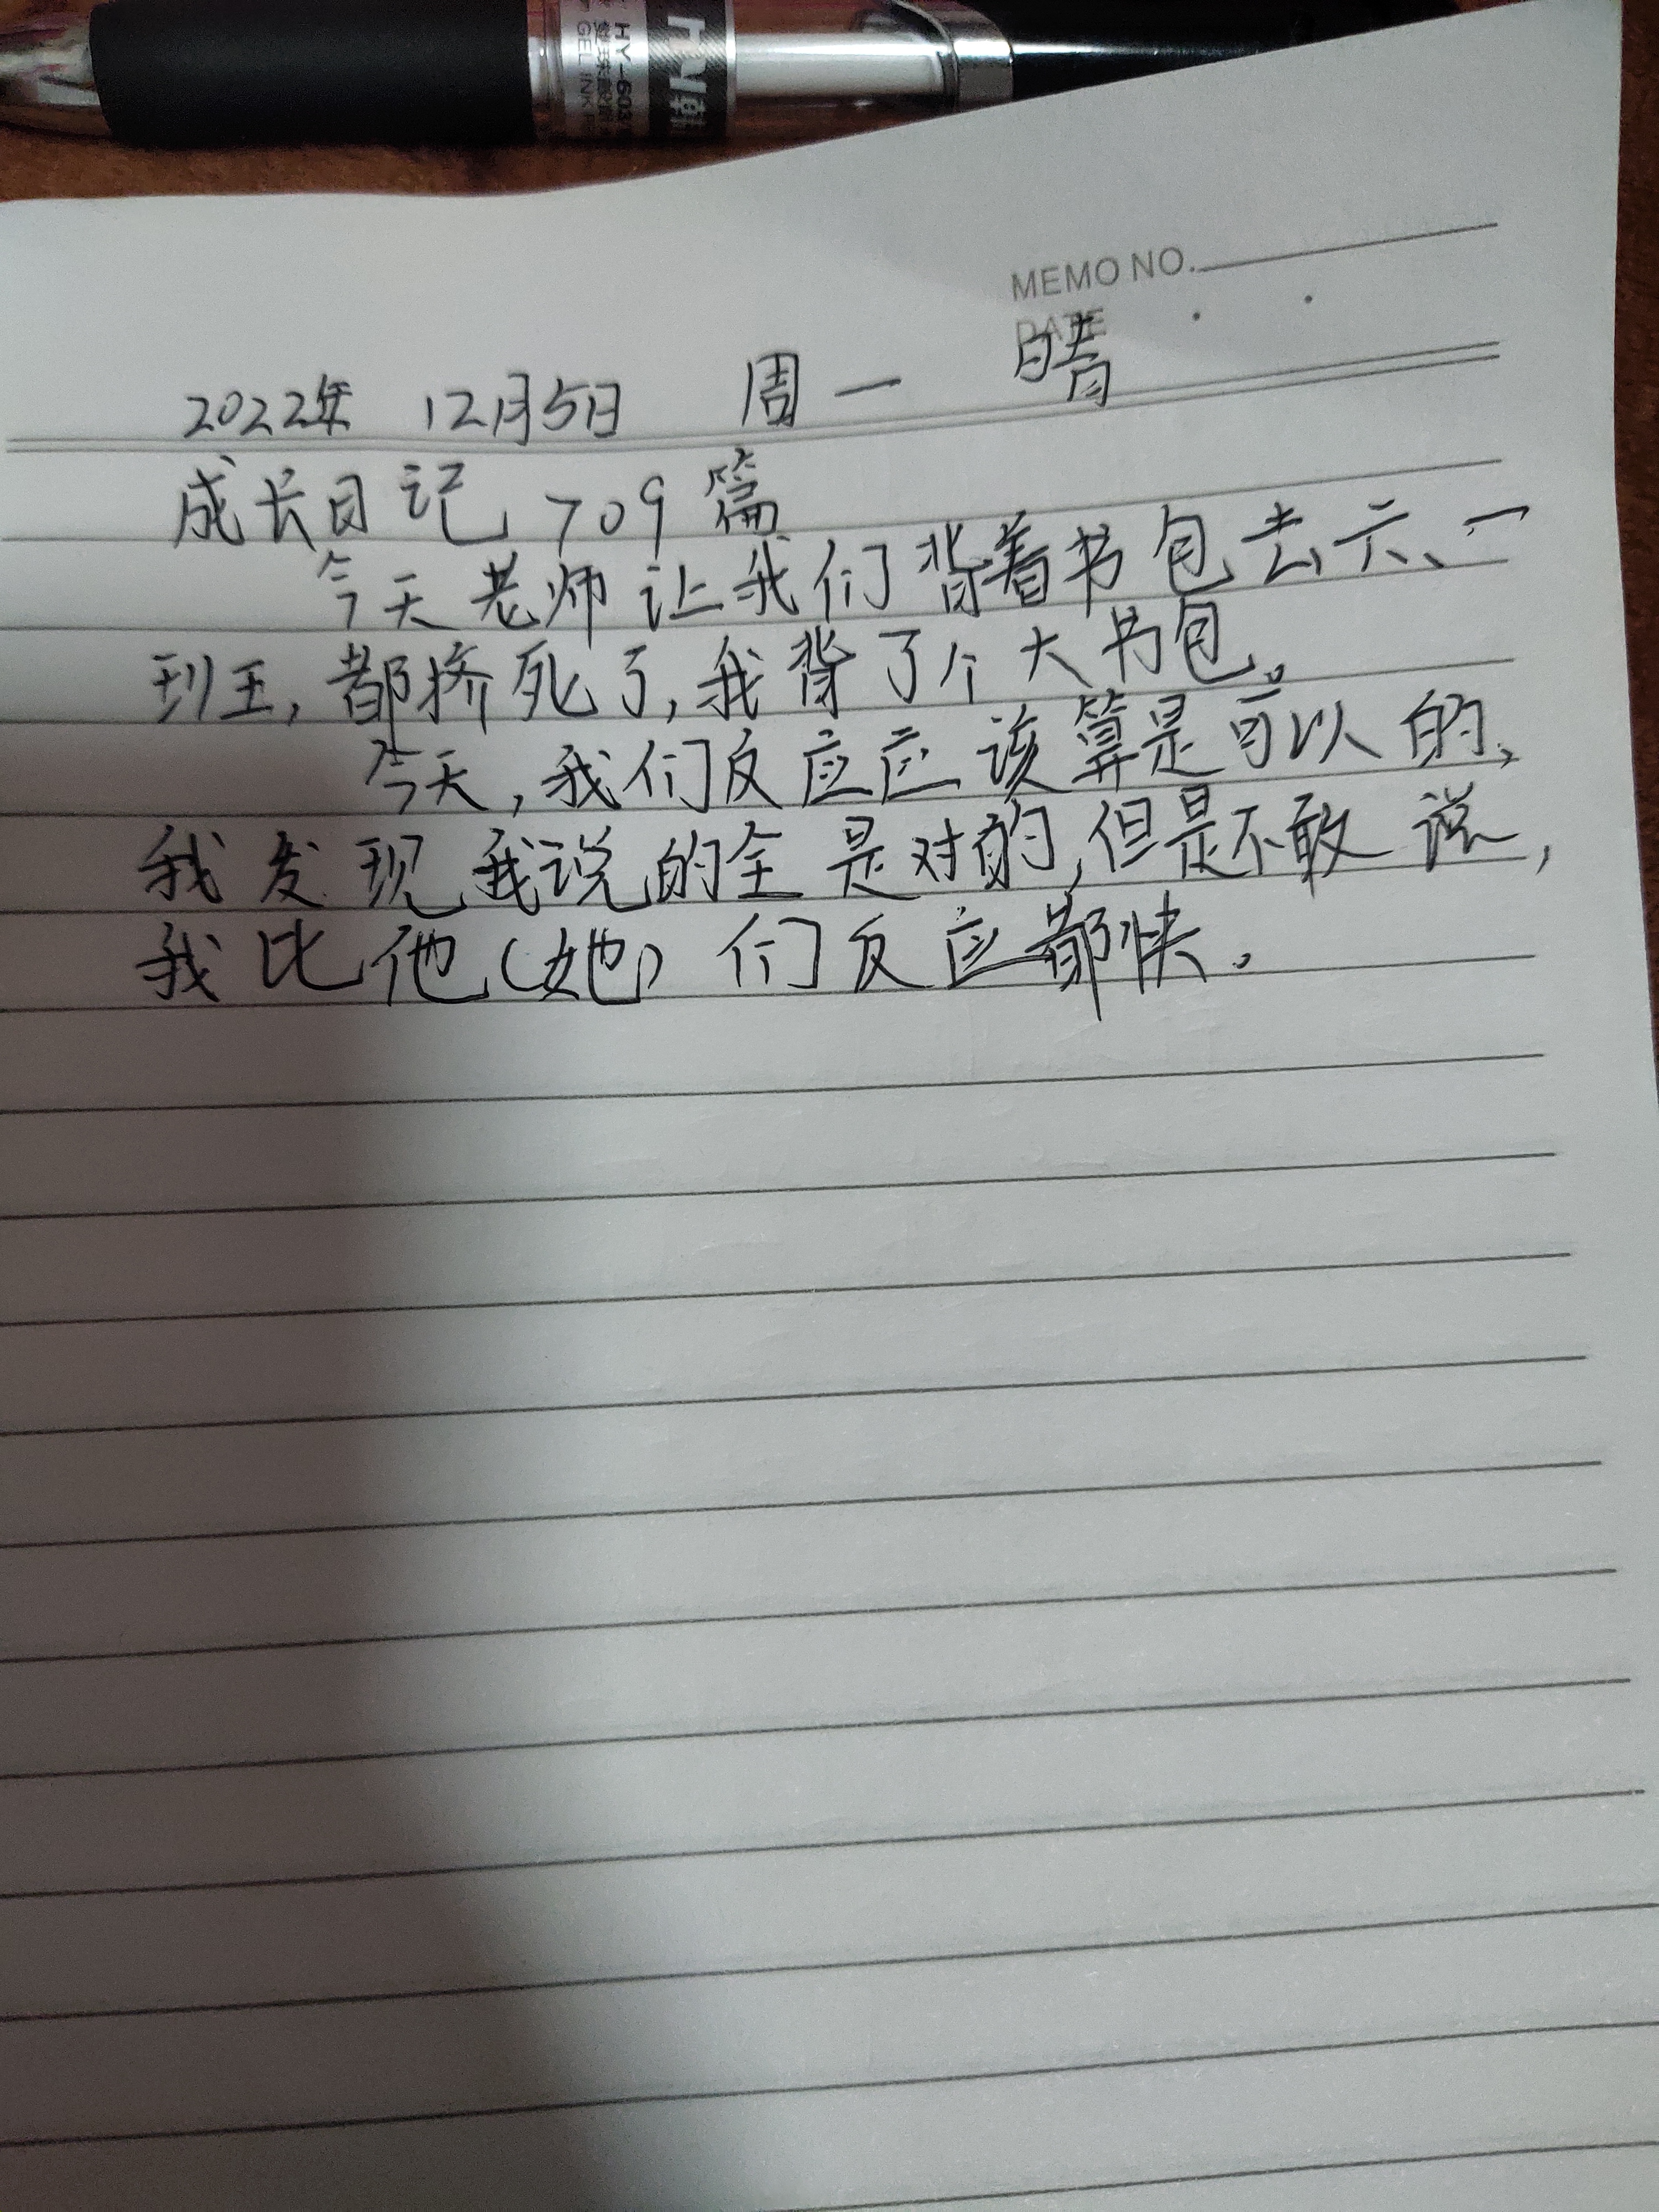 HY-603
GEL INK
MEMO NO.
DATE
2022年 12月5日 周一 晴
成长日记 709篇
今天老师让我们背着书包去六、一
班,都挤死了,我背了个大书包。
今天,我们反应应该算是可以的,
我发现我说的全是对的,但是不敢说,
我比他(她)们反应都快。